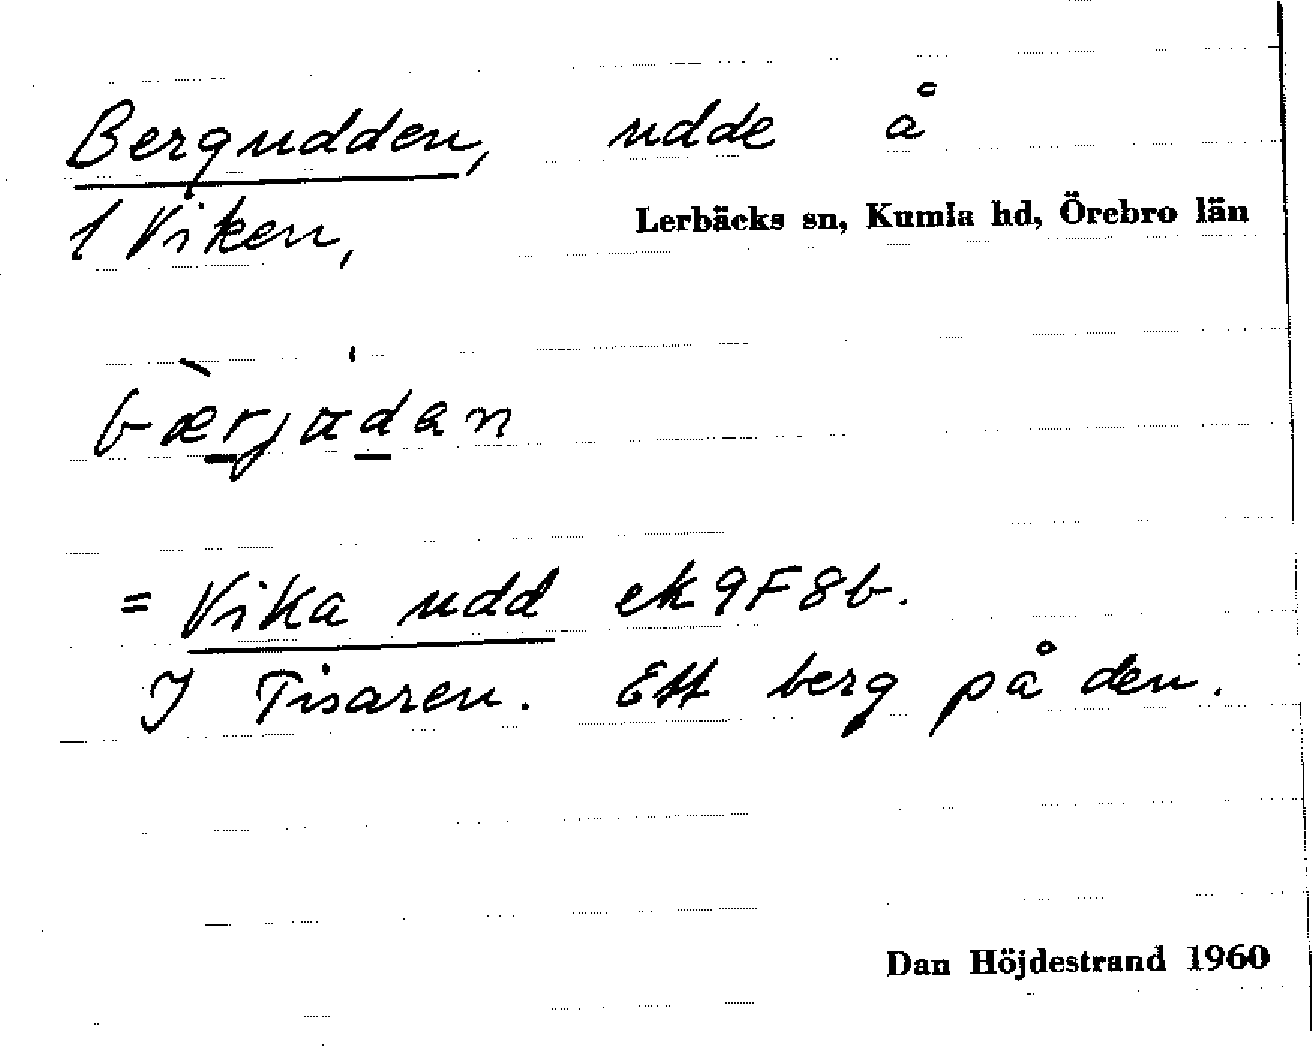 Bergudden, udde å
1 Viken,
Lerbäcks sn, Kumla hd, Örebro län
bær̲jud̲an
= Vika udd ek 9F8b.
I Tisaren. Ett berg på den.
Dan Höjdestrand 1960